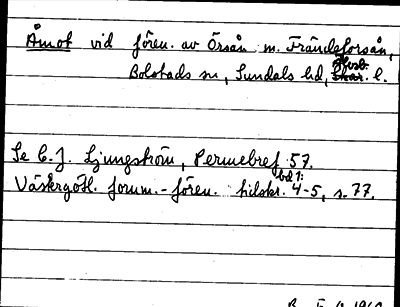 Åmot vid fören. av Örsån m. Frändeforsån,
Bolstads sn, Sundals hd, Älvsb. l.
Se C. J. Ljungström, Permebref 57.
Västergötl. fornm.-fören. tidskr. bd 1: 4-5, s. 77.